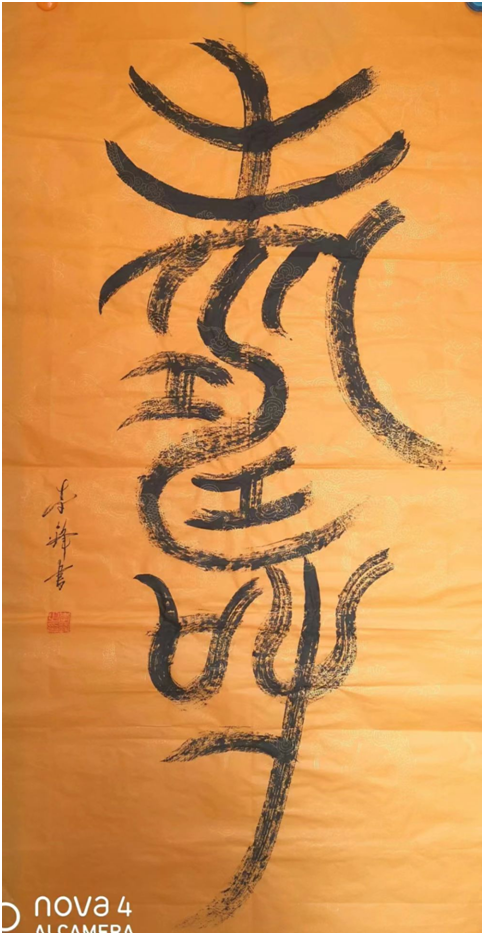 壽
李锋书
nova 4
AI CAMERA